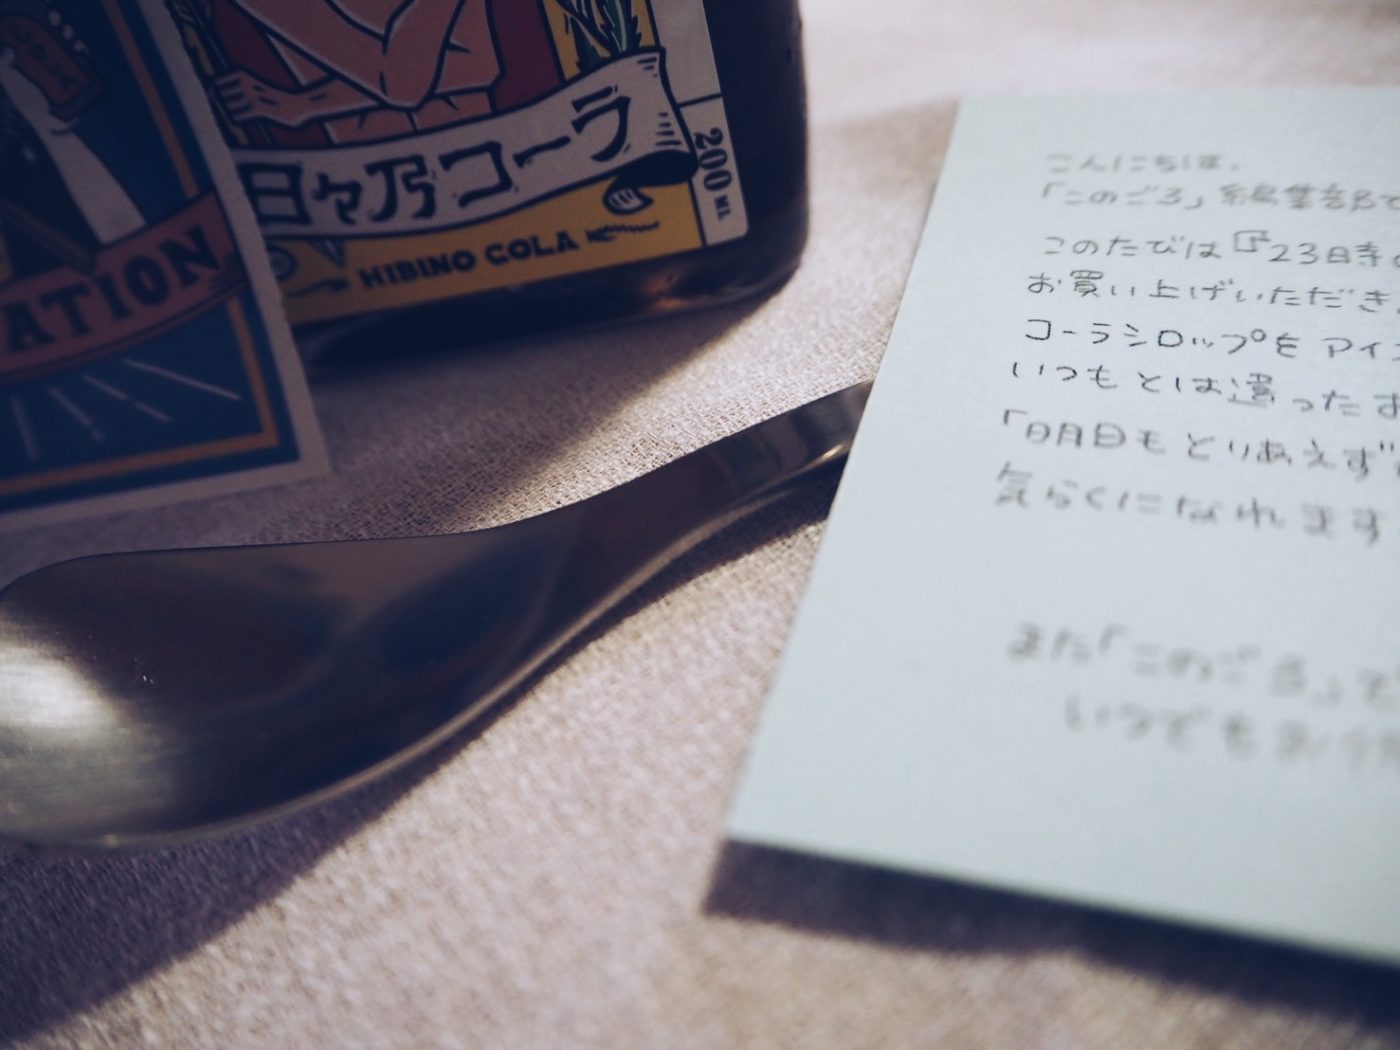 ATION
日々乃コーラ
HIBINO COLA
200 ML
こんにちは。
「このごろ」編集部で
このたびは『23時の
お買い上げいただき
コーラシロップを アイ
いつもとは違った
「明日もとりあえず
気らくになれます
また「このごろ」で
いつでもお待